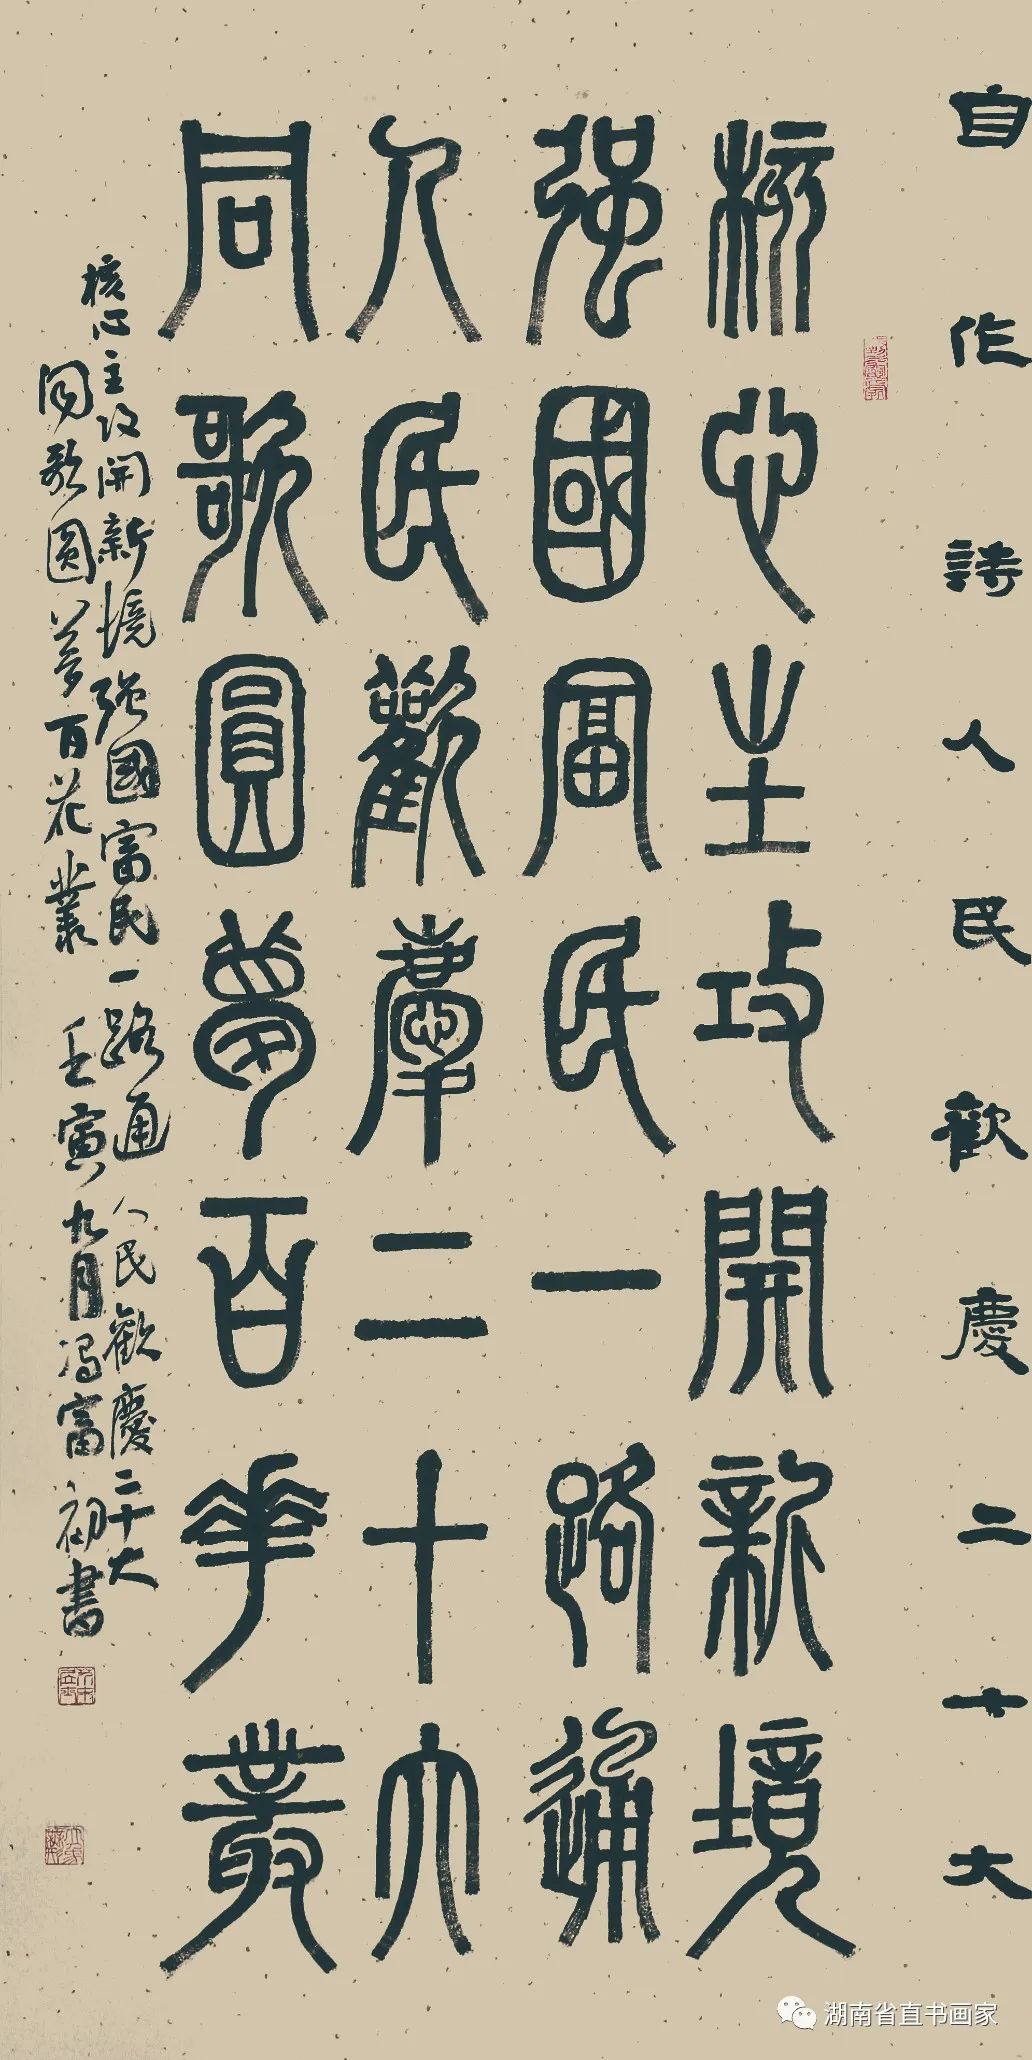 自作詩人民歡慶二十大
核心主攻開新境
强國富民一路通
人民歡慶二十大
同歌圓夢百華叢
核心主攻開新境强國富民一路通人民歡慶二十大
同歌圓夢百花叢壬寅九月馮富初書
湖南省直书画家